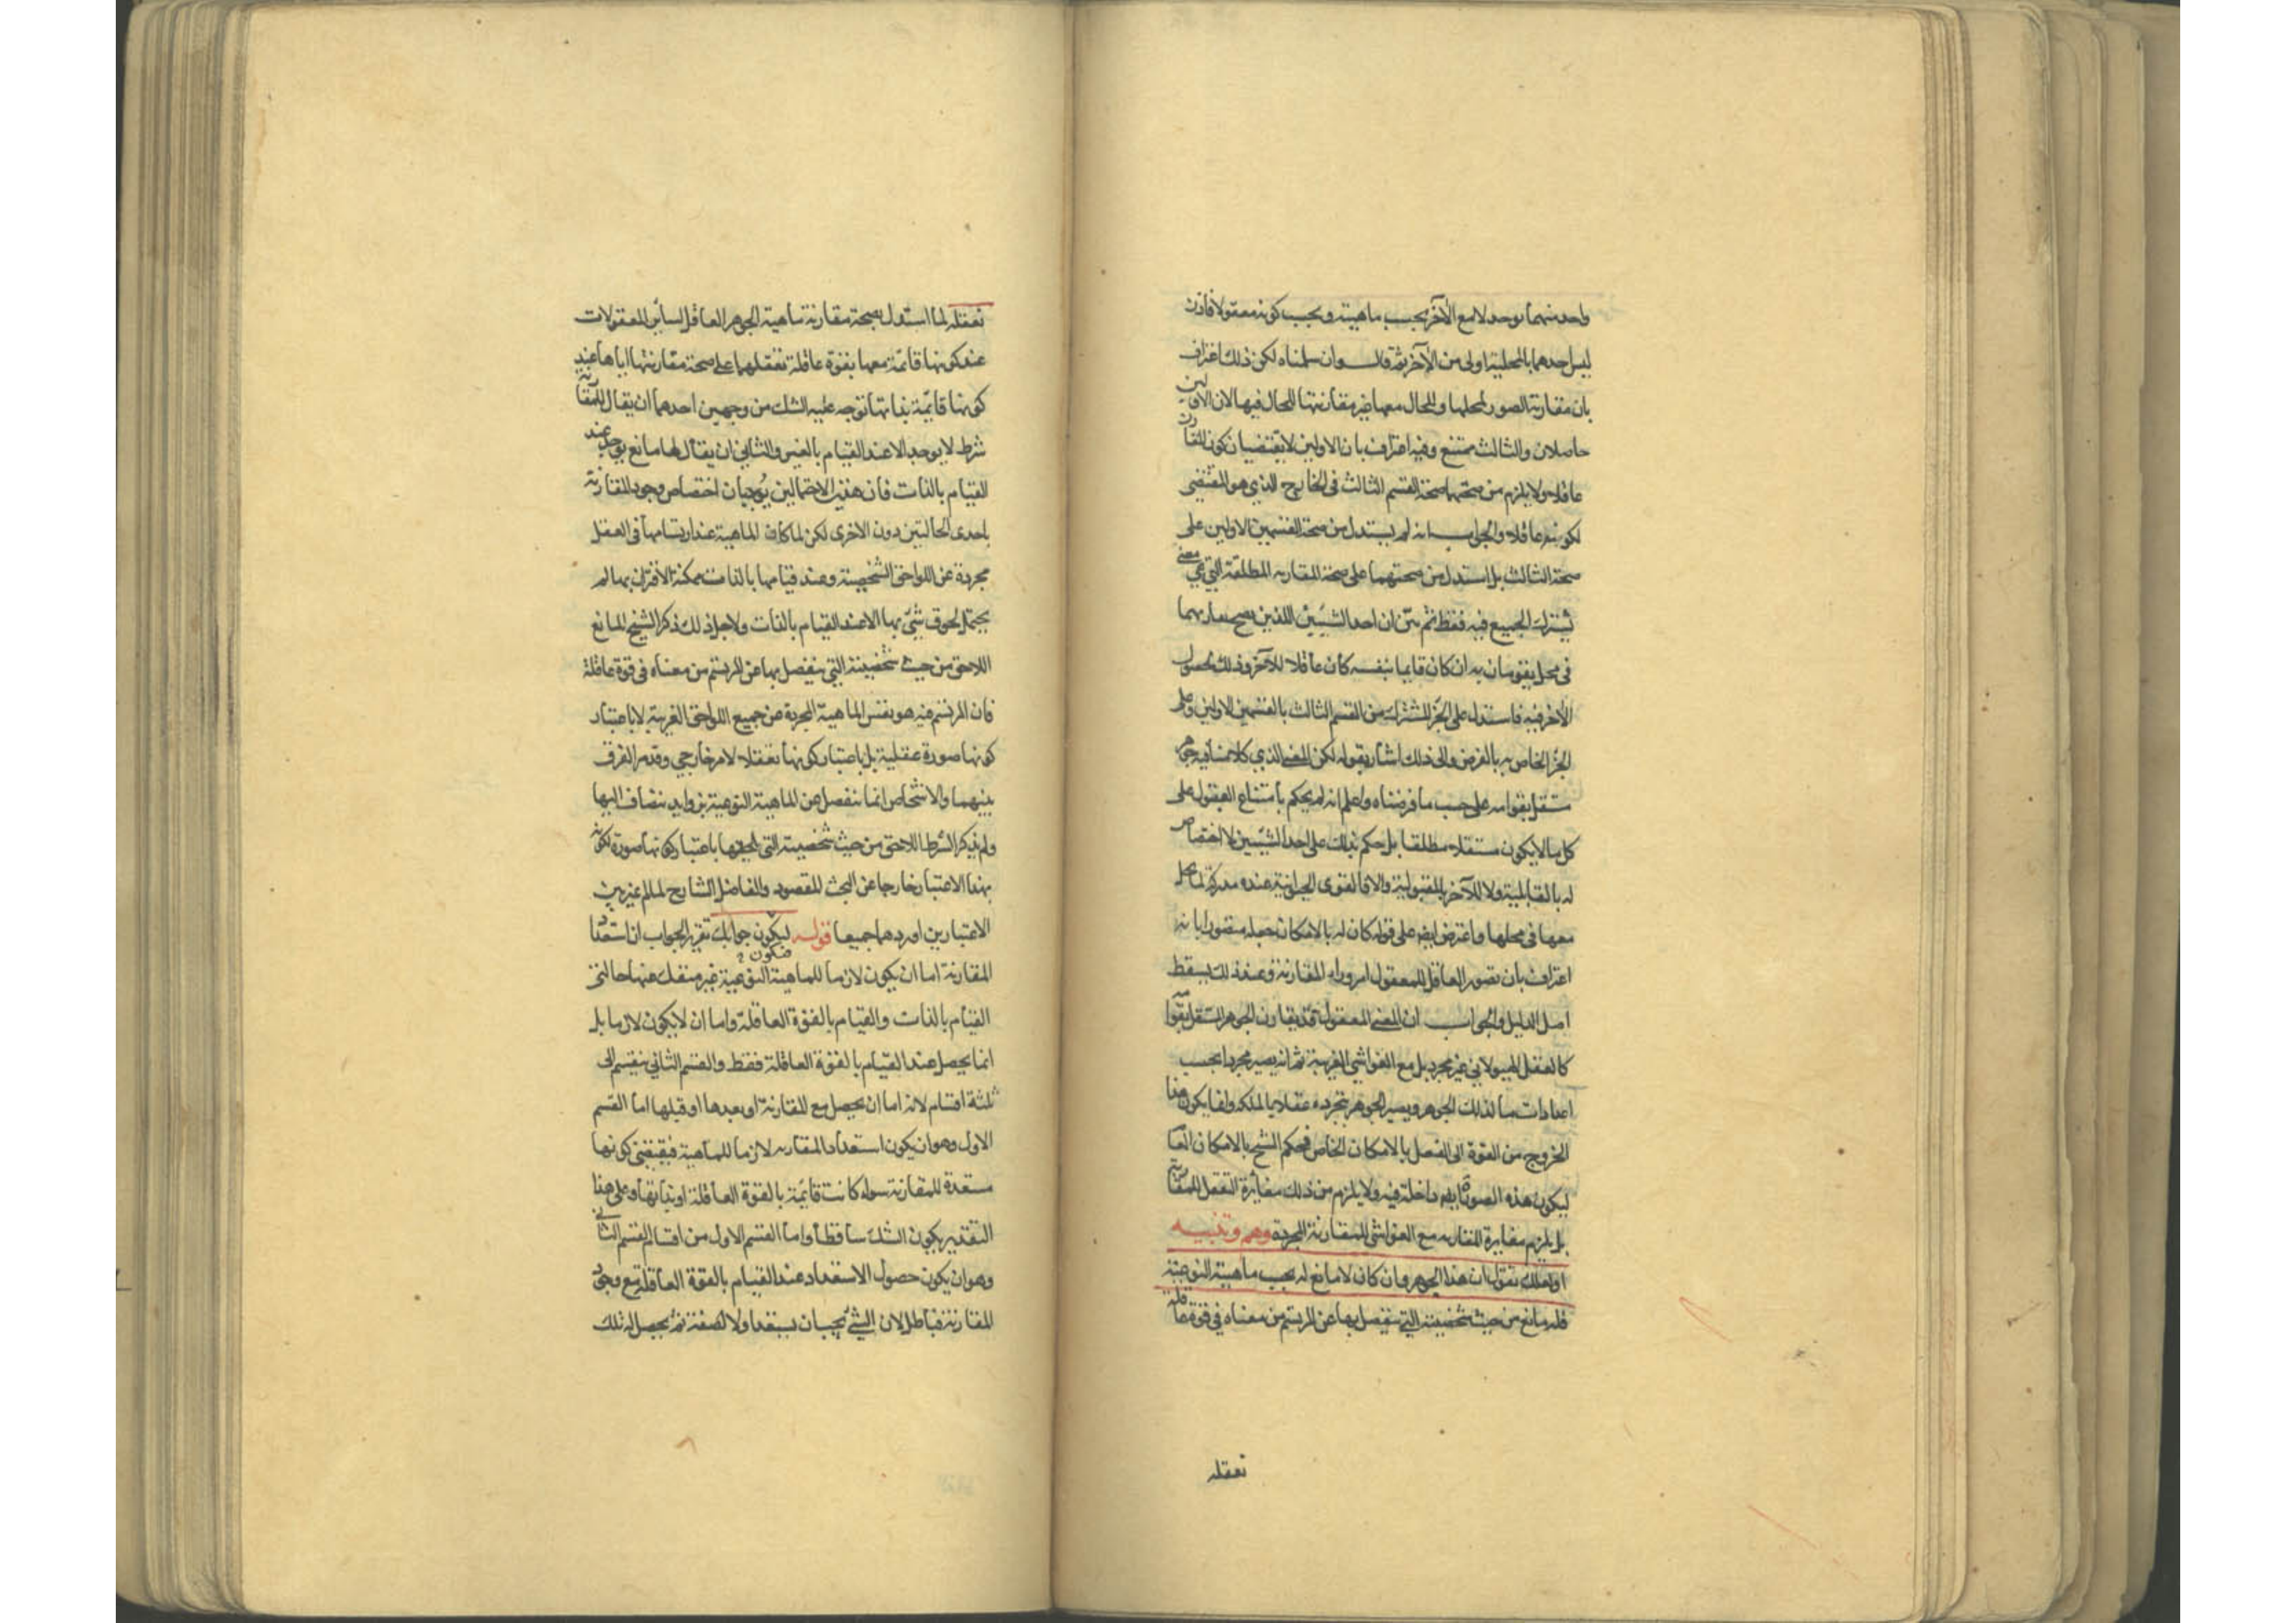 واحد منهما يوجد لا مع الآخر بحسب ماهيته ويجب كونه معقولا فاذن
ليس احدهما بالمحلية اولى من الآخر ثم قال وان سلمناه لكن ذلك اعتراف
بان مقارنة الصور لمحلها وللحال معها غير مقارنتها للحال فيها لان الاولين
حاصلان والثالث ممتنع وفيه اعتراف بان الاولين لا يقتضيان كون المقارن
عاقلا ولا يلزم من صحتهما صحة القسم الثالث في الخارج الذي هو المقتضى
لكونه عاقلا والجواب انه لم يستدل من صحة القسمين الاولين على
صحة الثالث بل استدل من صحتهما على صحة المقارنه المطلقة التي هي معنى
يشترك الجميع فيه فقط ثم بيّن ان احد الشيئين اللذين يصح مقارنتهما
في محل يقومان به ان كان قايما بنفسه كان عاقلا للآخر وذلك لحصول
الآخر فيه فاستدل على الجزء المشترك من القسم الثالث بالقسمين الاولين وعلى
الجزء الخاص به بالفرض والى ذلك اشار بقوله لكن المعنى الذي كلامنا فيه جوهر
مستقل بقوامه على حسب ما فرضناه واعلم انه لم يحكم بامتناع المعقول على
كل ما لا يكون مستقلا مطلقا بل حكم بذلك على احد الشيئين لا اختصاص
له بالقابلية ولا للآخر بالمقبولية والا فالقوى الحيوانية عنده مدركة لما حصل
معها في محلها واعترض ايضا على قوله كان له بالامكان جعله متصورا بانه
اعتراف بان تصور العاقل للمعقول امر وراء المقارنة وعند ذلك يسقط
اصل الدليل والجواب ان المعنى المعقول قد يقارن الجوهر المستقل بقوامه
كالعقل الهيولاني غير مجرد بل مع الغواشي الغريبة ثم انه يصير مجردا بحسب
اعدادات ما لذلك الجوهر ويصير الجوهر بتجرده عقلا بالملكه وانما يكون هذا
الخروج من القوة الى الفعل بالامكان الخاص فحكم الشيخ بالامكان العام
ليكون هذه الصورة ايضا داخلة فيه ولا يلزم من ذلك مغايرة التعقل للمقارنة
بل يلزم مغايرة المقارنه مع الغواشي للمقارنة المجردة وهم وتنبيه
او لعلك تقول ان هذا الجوهر وان كان لا مانع له بحسب ماهيته النوعية
فله مانع من حيث شخصيته التي ينفصل بها عن المرتسم من معناه في قوة عاقلة
تعقله
تعقله لما استدل بصحة مقارنة ماهية الجوهر العاقل لسائر المعقولات
عند كونها قائمة معها بقوة عاقلة تعقلهما على صحة مقارنتها اياها عند
كونها قايمة بذاتها توجه عليه الشك من وجهين احدهما ان يقال للمقارنة
شرط لا يوجد الا عند القيام بالغير والثاني ان يقال لها مانع يوجد عند
القيام بالذات فان هذين الاحتمالين يوجبان اختصاص وجود المقارنة
باحدى الحالتين دون الاخرى لكن لما كان للماهية عند ارتسامها في العقل
مجردة عن اللواحق الشخصية وعند قيامها بالذات ممكنة الاقتران بها لم
يحتمل لحوق شئ بها الا عند القيام بالذات ولاجل ذلك ذكر الشيخ المانع
اللاحق من حيث شخصيته التي ينفصل بها عن المرتسم من معناه في قوة عاقلة
فان المرتسم فيه هو نفس الماهية المجردة عن جميع اللواحق الغريبة لا باعتبار
كونها صورة عقلية بل باعتبار كونها تعقلا لامر خارجي وقد مر الفرق
بينهما والاشخاص انما ينفصل عن الماهية النوعية بزوايد تنضاف اليها
ولم يذكر الشرط اللاحق من حيث شخصيته التي تلحقها باعتبار كونها صورة لكونه
بهذا الاعتبار خارجا عن البحث المقصود والفاضل الشارح لما لم يميز بين
الاعتبارين اوردهما جميعا قوله ليكون جوابك تقرير الجواب ان استعداد
فتكون
المقارنة اما ان يكون لازما للماهية النوعية غير منفك عنها حالتى
القيام بالذات والقيام بالقوة العاقلة واما ان لا يكون لازما بل
انما يحصل عند القيام بالقوة العاقلة فقط والقسم الثاني ينقسم الى
ثلثة اقسام لانه اما ان يحصل مع المقارنة او بعدها او قبلها اما القسم
الاول وهو ان يكون استعداد المقارنه لازما للماهية فيقتضى كونها
مستعدة للمقارنة سواء كانت قايمة بالقوة العاقلة او بذاتها وعلى هذا
التقدير يكون الشك ساقطا واما القسم الاول من اقسام القسم الثانى
وهو ان يكون حصول الاستعداد عند القيام بالقوة العاقلة مع وجود
المقارنة فباطل لان الشئ يجب ان يستعد اولا لصفة ثم يحصل له تلك